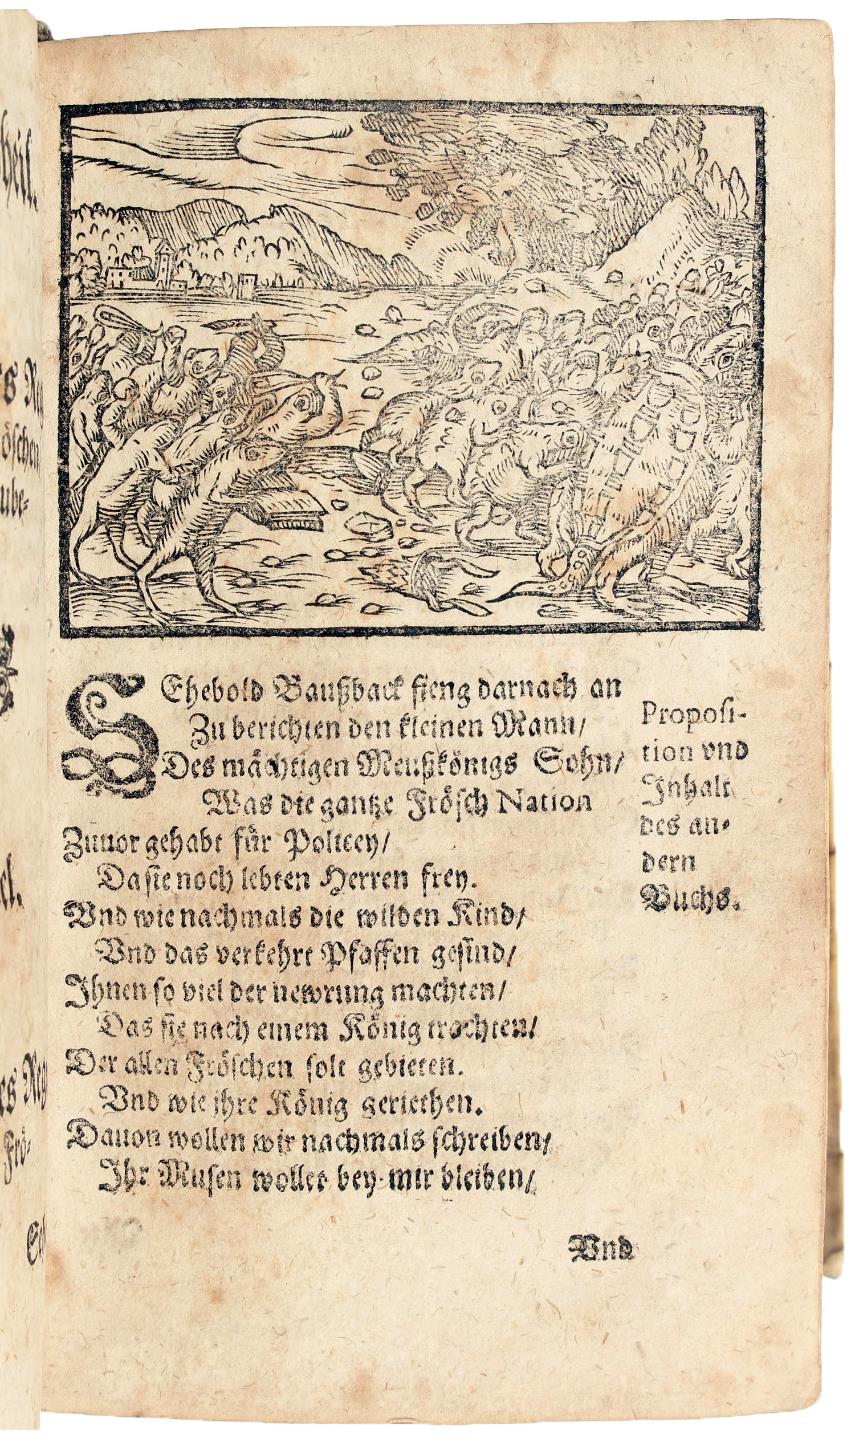 SEhebold Baußback fieng darnach an
Zu berichten den kleinen Mann/
Des mächtigen Meußkönigs Sohn/
Was die gantze Frösch Nation
Zuuor gehabt für Policey/
Da sie noch lebten Herren frey.
Vnd wie nachmals die wilden Kind/
Vnd das verkehrt Pfaffen gesind/
Ihnen so viel der newrung machten/
Das sie nach einem König trachten/
Der allen Fröschen solt gebieten.
Vnd wie ihre König geriethen.
Dauon wollen wir nachmals schreiben/
Ihr Musen wollet bey mir bleiben/
Proposi-
tion vnd
Inhalt
des an-
dern
Buchs.
Vnd